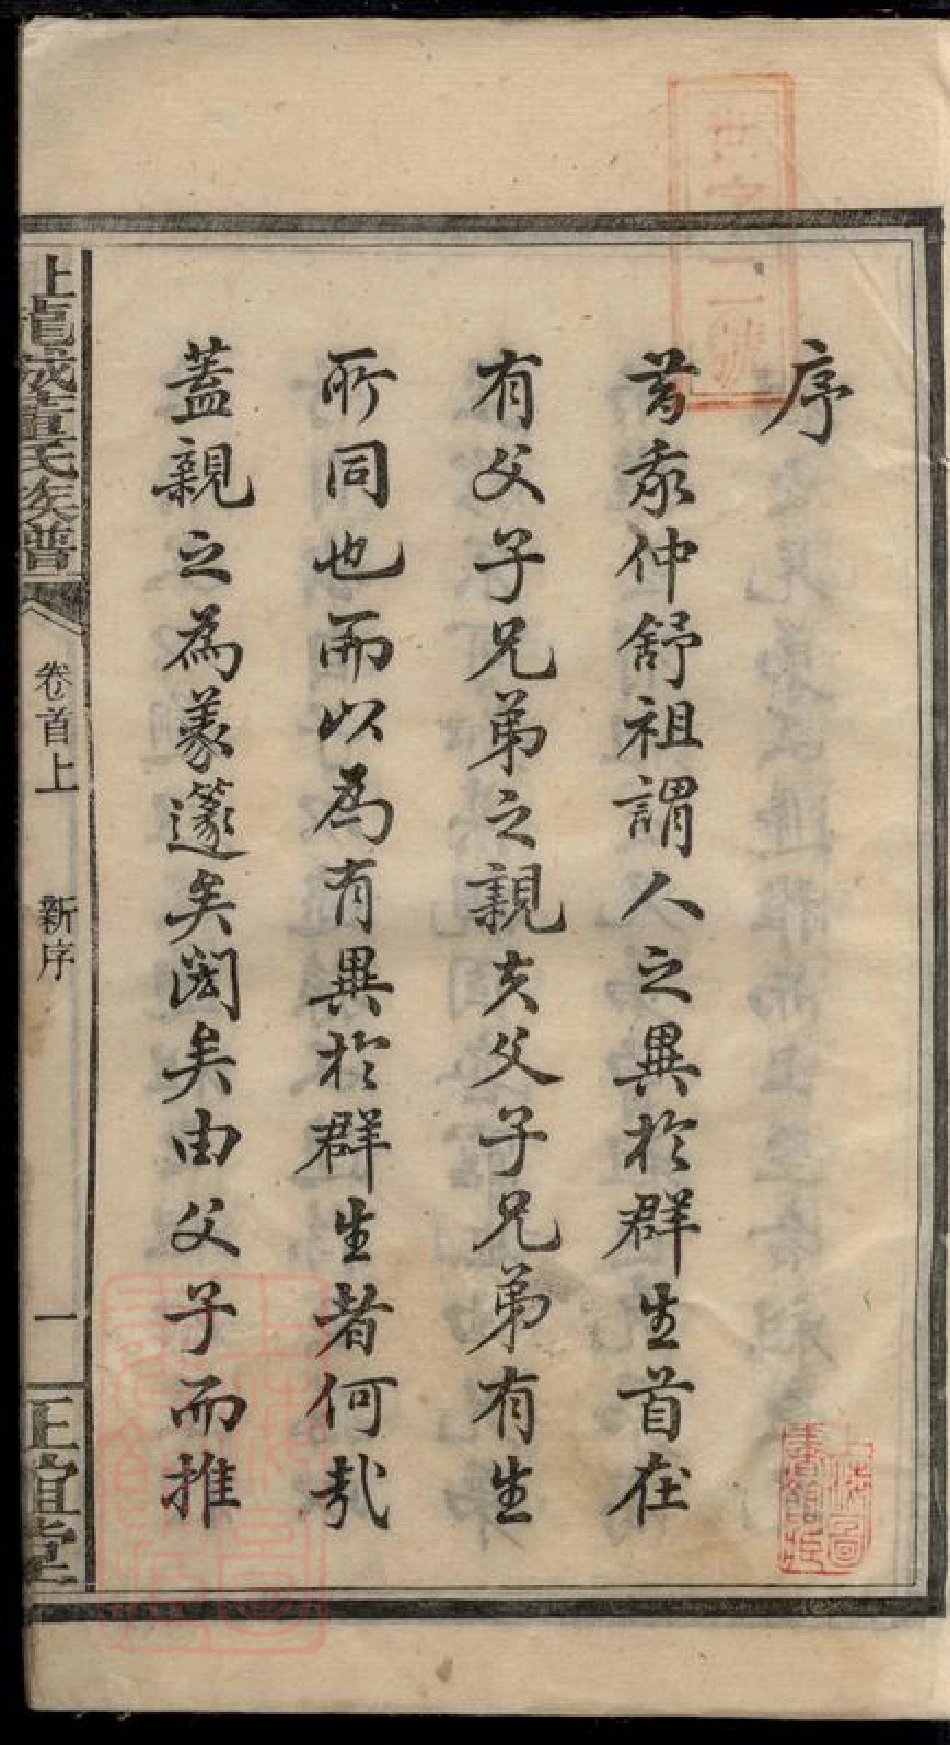 序
昔我仲舒祖謂人之異於群生首在
有父子兄弟之親夫父子兄弟有生
所同也而以為有異於群生者何哉
蓋親之為義邃矣闊矣由父子而推
董氏族譜
卷首上
新序
一
正誼堂
上海圖書館藏